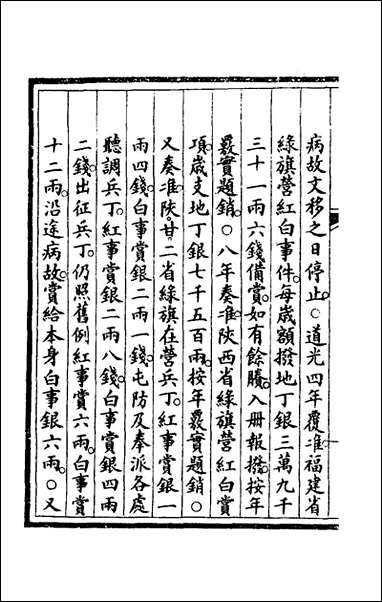 病故文移之日停止。○道光四年覆准福建省
綠旗營紅白事件。每歲額撥地丁銀三萬九千
三十一兩六錢備賞。如有餘賸。入冊報撥。按年
覈實題銷。○八年奏准陝西省綠旗營紅白賞
項。歲支地丁銀七千五百兩。按年覈實題銷。○
又奏准。陝。甘。二省綠旗在營兵丁。紅事賞銀一
兩四錢。白事賞銀二兩一錢。屯防及奉派各處
聽調兵丁。紅事賞銀二兩八錢。白事賞銀四兩
二錢。出征兵丁。仍照舊例紅事賞六兩。白事賞
十二兩。沿途病故。賞給本身白事銀六兩。○又